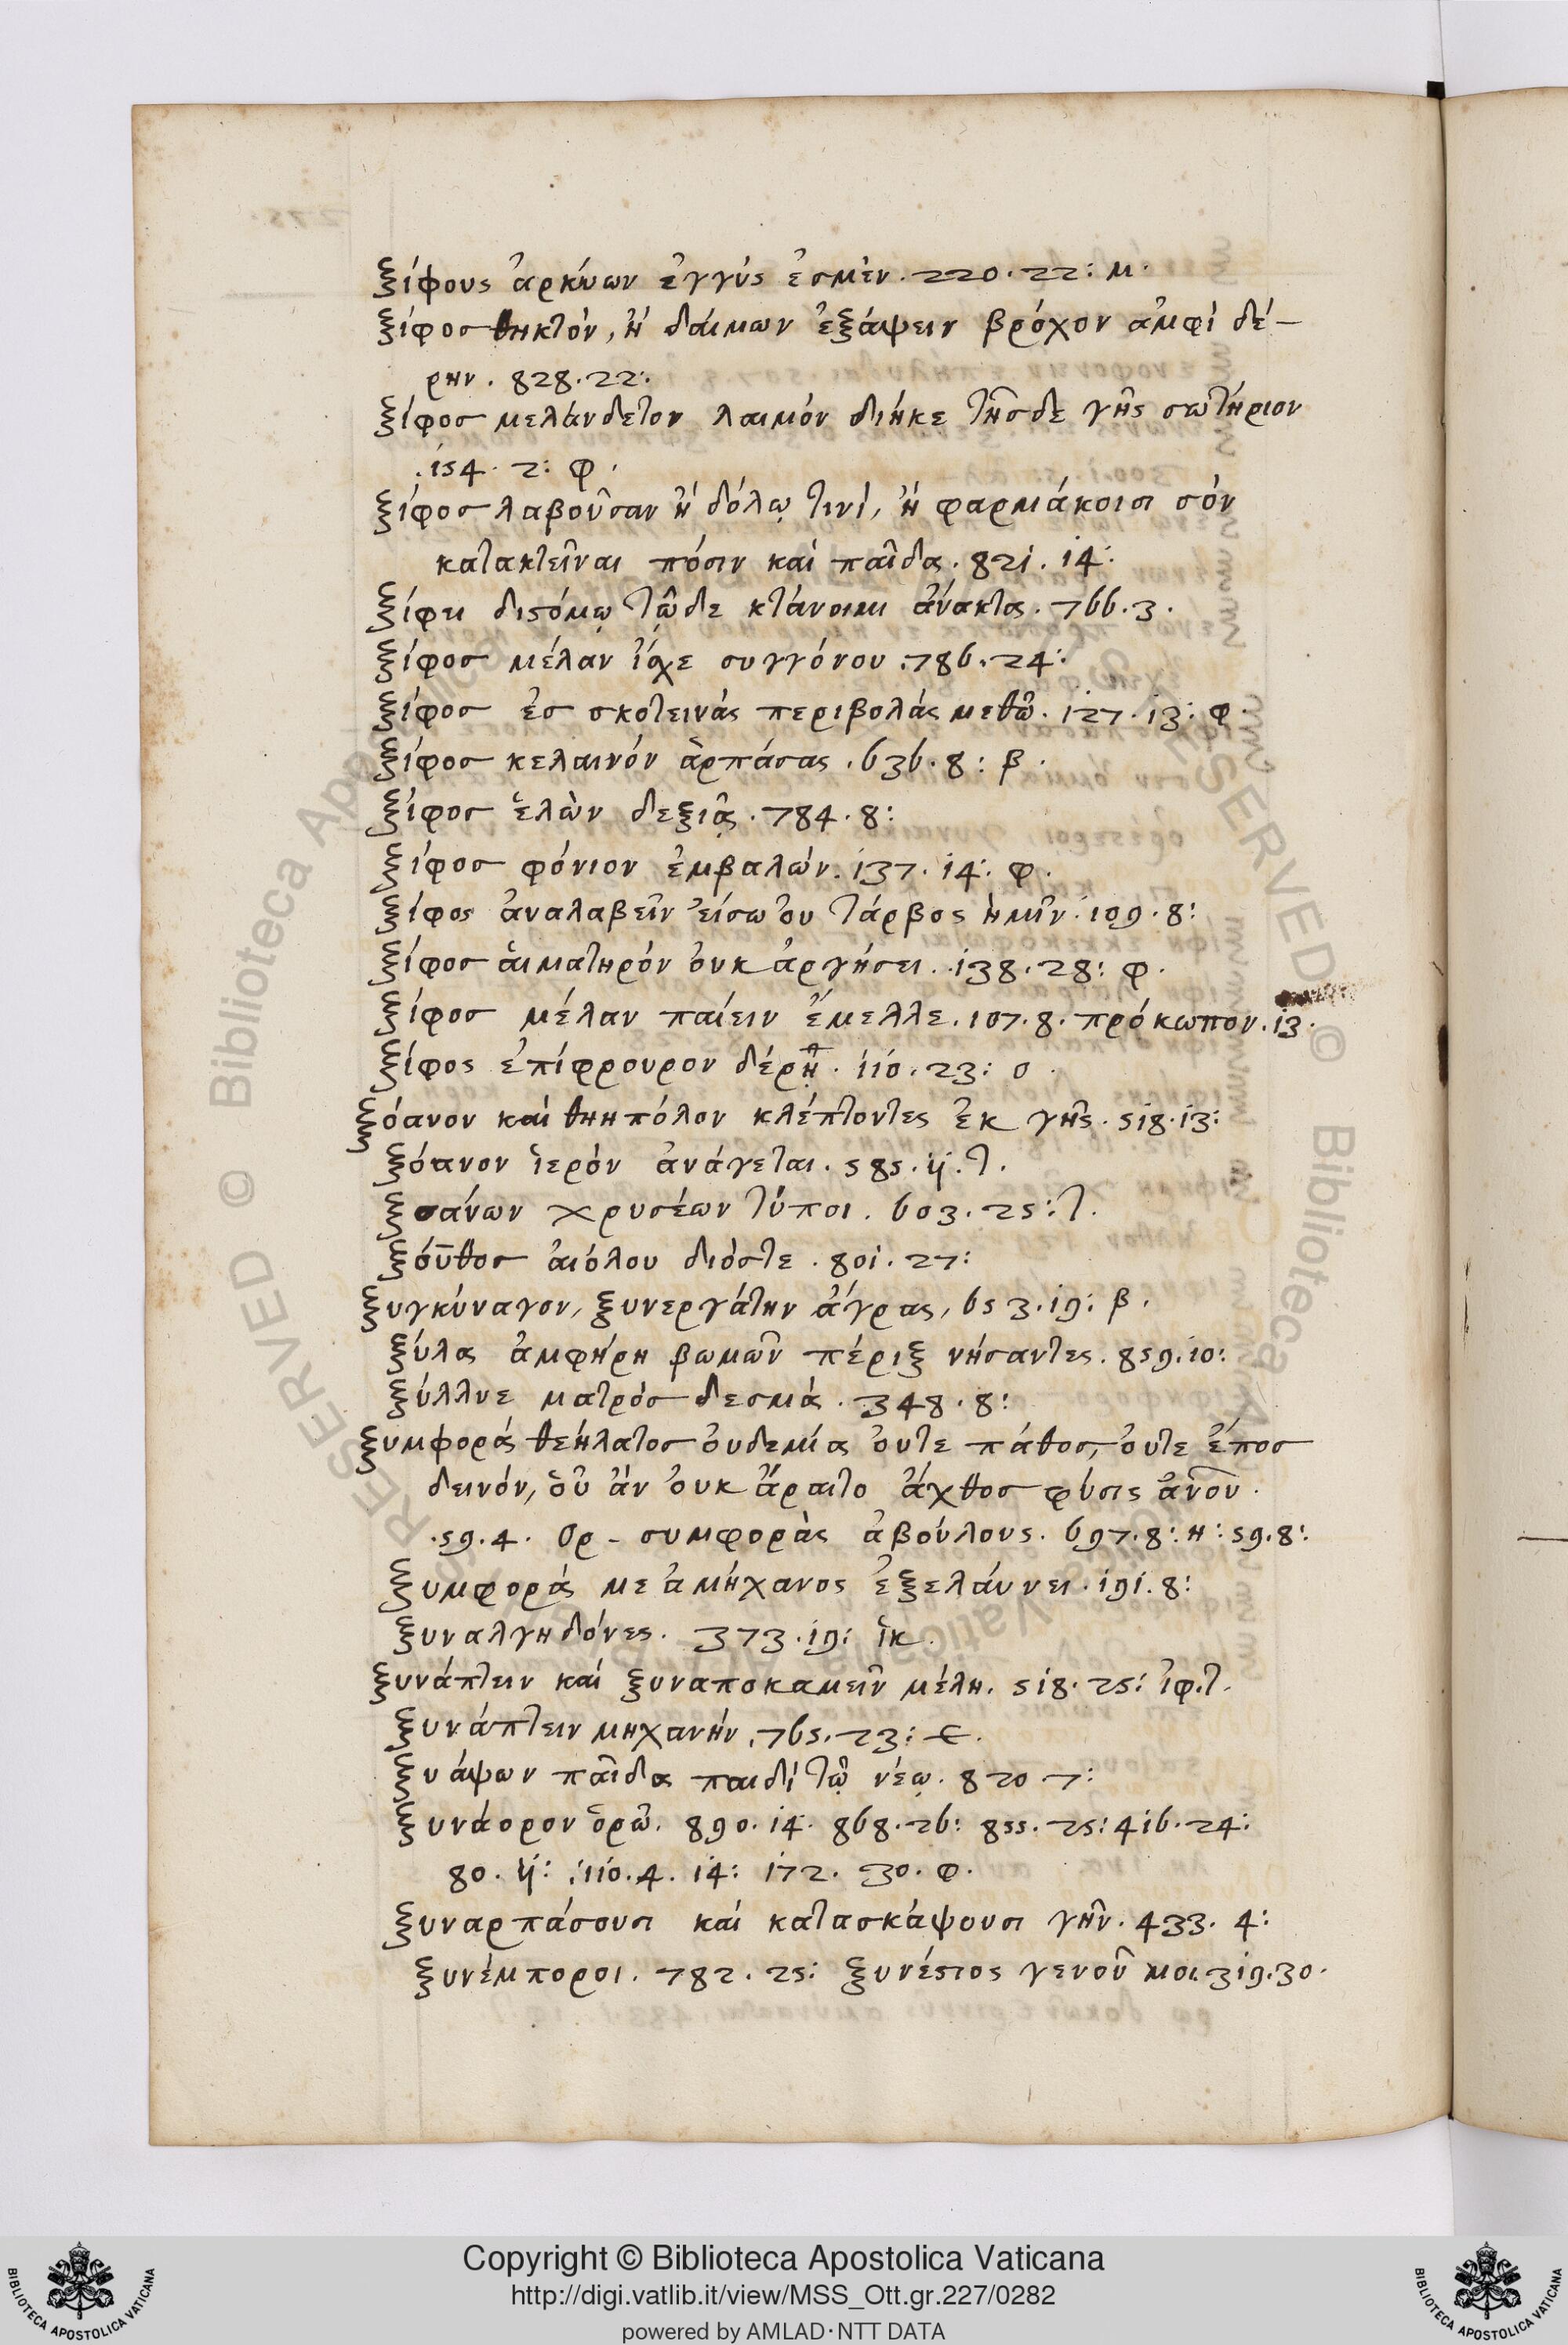 ξίφους ἀρκύων ἐγγύς ἐσμέν. 220. 22: μ.
ξίφος θηκτόν, ἠ δαίμων ἐξάψειν βρόχον ἀμφί δέ-
ρην. 828. 22:
ξίφος μελάνδετον λαιμόν διήκε τῆσδε γῆς σωτήριον
.154. 2: φ.
ξίφος λαβοῦσαν ἠ δόλῳ τινί, ἠ φαρμάκοισι σόν
κατακτεῖναι πόσιν καὶ παῖδα. 821. 14:
ξίφει διστόμῳ τῷδε κτάνοιμι ἄνακτα. 766. 3.
ξίφος μέλαν ἴσχε συγγόνου. 786. 24:
ξίφος ἐσ σκοτεινάς περιβολάς μεθῶ. 127. 13: φ.
ξίφος κελαινόν ἁρπάσας. 636. 8: β.
ξίφος ἑλὼν δεξιᾷ. 784. 8:
ξίφος φόνιον ἐμβαλών. 137. 14: φ.
ξίφος ἀναλαβεῖν εἴσω ου τάρβος ἡμῖν. 109. 8:
ξίφος αἱματηρόν ὀυκ ἀργήσει. 138. 28: φ.
ξίφος μέλαν παίειν ἔμελλε. 107. 8. πρόκωπον. 13.
ξίφος ἐπίφρουρον δέρῃ. 110. 23: ο.
ξόανον καὶ θηηπόλον κλέπτοντες ἐκ γῆς. 518. 13:
ξόανον ἱερὸν ἀνάγεται. 585. 11. τ.
ξοάνων χρυσέων τύποι. 603. 25: τ.
ξοῦθος ἀιόλου διόστε. 801. 27:
ξυγκύναγον, ξυνεργάτην ἄγρας, 653. 19: β.
ξύλα ἀμφήρη βωμῶν πέριξ νήσαντες. 859. 10:
ξύλλυε ματρός δεσμά. 348. 8:
ξυμφορά θεήλατος ὀυδεμία ὀυτε πάθος, ὀυτε ἔπος
δεινόν, ὁῦ ἀν ὀυκ ἄραιτο ἄχθος φύσις ἀνου.
.59. 4. Ορ - συμφορὰς ἀβούλους. 697. 8: η: 59. 8:
ξυμφορά με ἀμήχανος ἐξελάυνει. 191. 8:
ξυναλγηδόνες. 373. 19: ἱκ.
ξυνάπτειν καί ξυναποκαμεῖν μέλη. 518. 25: ἰφ. τ.
ξυνάπτειν μηχανήν. 765. 23: ε.
ξυάψων παῖδα παιδί τῷ νέῳ. 820 7:
ξυνάορον ὁρῶ. 890. 14. 868. 26: 855. 25: 416. 24:
80. 11: 110. 4. 14: 172. 30. φ.
ξυναρπάσουσι καί κατασκάψουσι γῆν. 433. 4:
ξυνέμποροι. 782. 25: ξυνέστιος γενοῦ μοι. 319. 30.
Copyright © Biblioteca Apostolica Vaticana
http://digi.vatlib.it/view/MSS_Ott.gr.227/0282
powered by AMLAD·NTT DATA